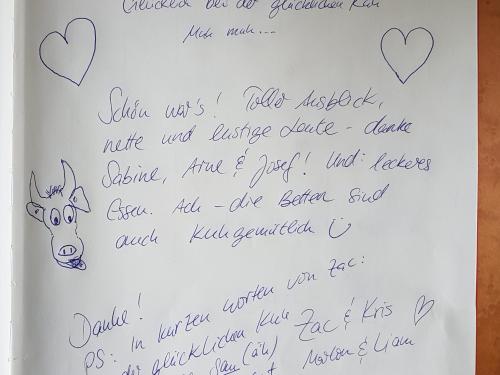 Glücken bei der glücklichen Kuh
Muh muh...
Schön war's! Toller Ausblick,
nette und lustige Leute - danke
Sabine, Arne & Josef! Und: leckeres
Essen. Ach - die Betten sind
auch Kuhgemütlich
Danke!
PS: In kurzen Worten von Zac:
der glücklichen Kuh Zac & Kris
Sau (äh) Marlon & Liam